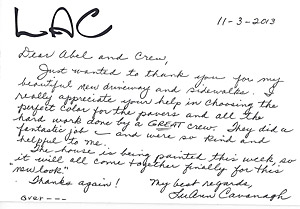 LAC
11-3-2013
Dear Abel and Crew,
Just wanted to thank you for my
beautiful new driveway and sidewalks. I
really appreciate your help in choosing the
perfect color for the pavers and all the
hard work done by a GREAT crew. They did a
fantastic job - and were so kind and
helpful to me.
The house is being painted this week, so
it will all come together finally for this
"new look."
Thanks again! My best regards,
over --- LuAnn Cavanagh